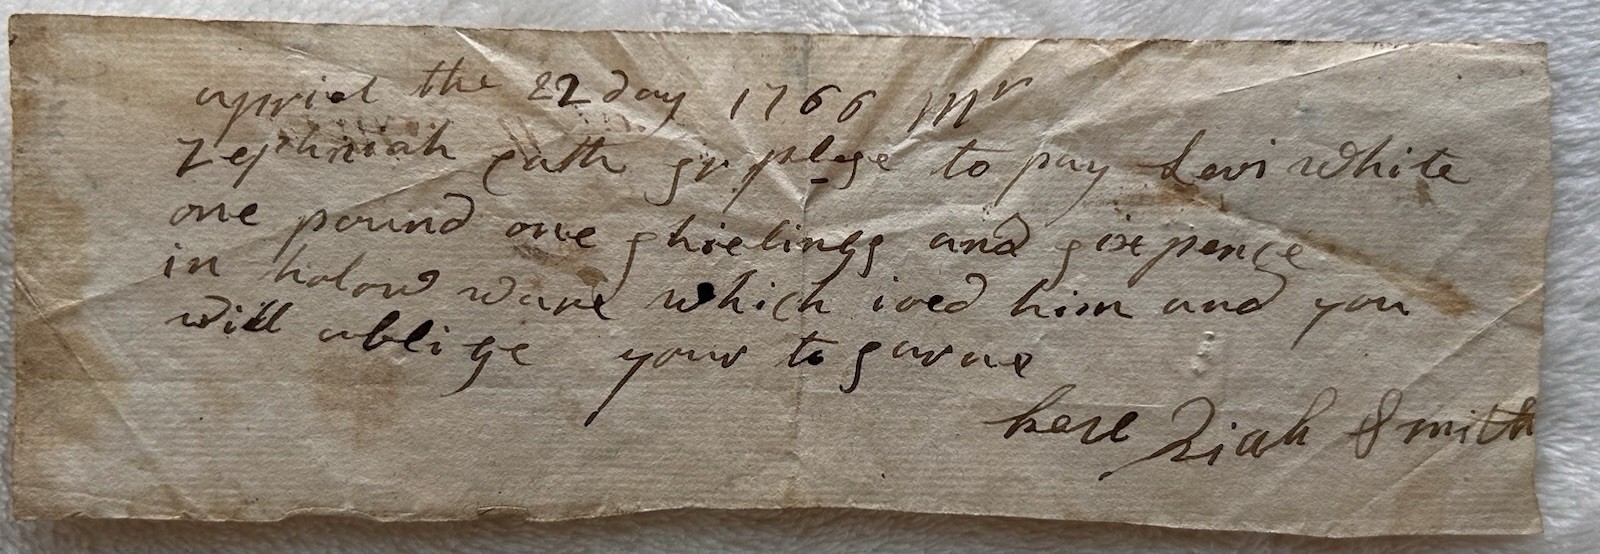 appriel the 22 day 1766 Mr
Zephniah cath sr plese to pay Levi white
one pound one shielings and sixpence
in holow ware which ioed him and you
will ablige your to sarve
here Ziah Smith